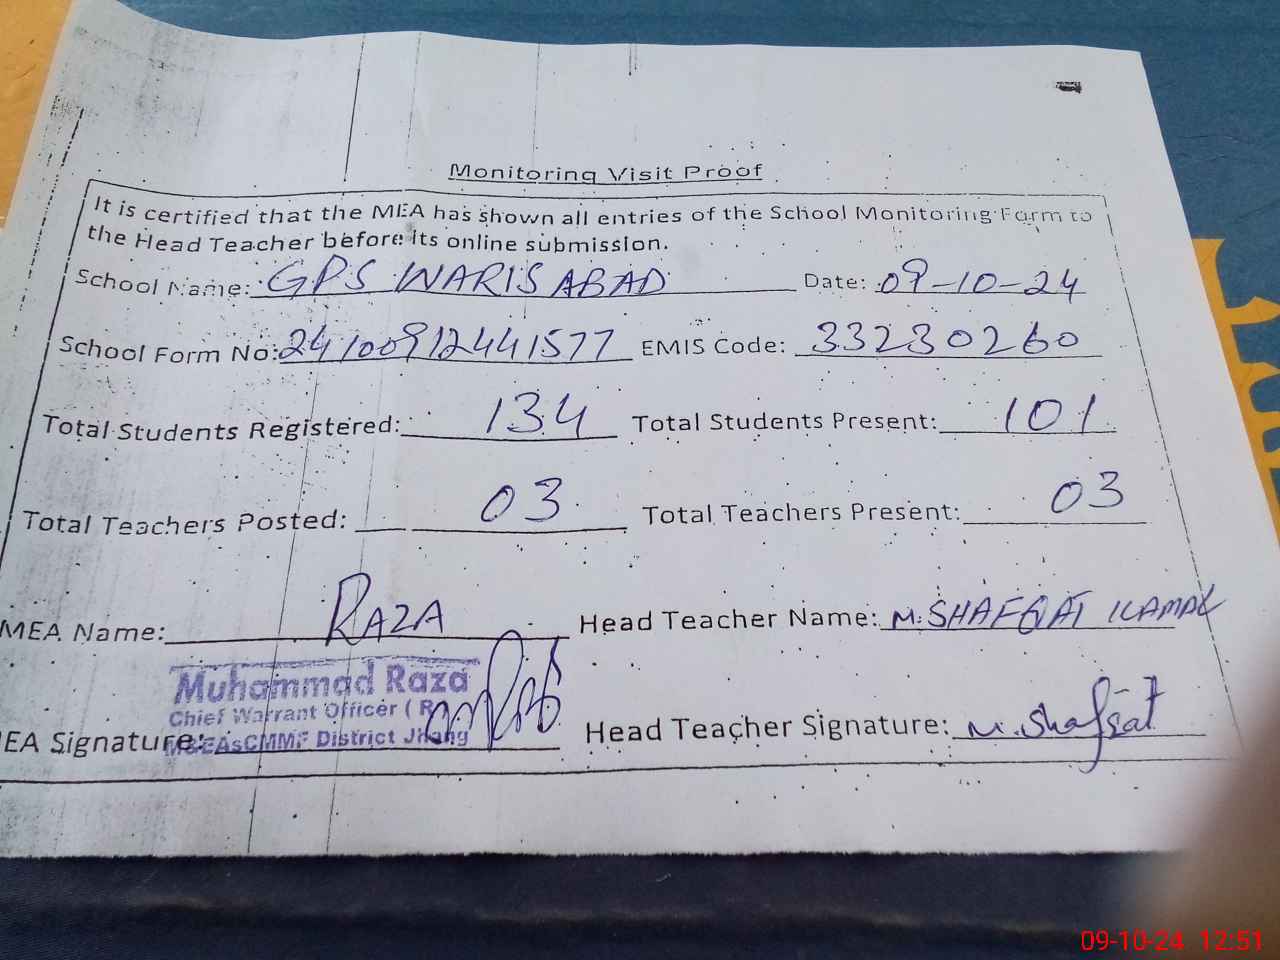 Monitoring Visit Proof
It is certified that the MEA has shown all entries of the School Monitoring Form to
the Head Teacher before its online submission.
School Name: GPS WARISABAD Date: 09-10-24
School Form No: 24100912441577 EMIS Code: 33230260
Total Students Registered: 134 Total Students Present: 101
Total Teachers Posted: 03 Total Teachers Present: 03
MEA Name: RAZA Head Teacher Name: M. SHAFQAT KAMAL
Muhammad Raza
Chief Warrant Officer (R
EA Signature: Head Teacher Signature: M. Shafqat
M&EAsCMMF District Jhang
09-10-24 12:51